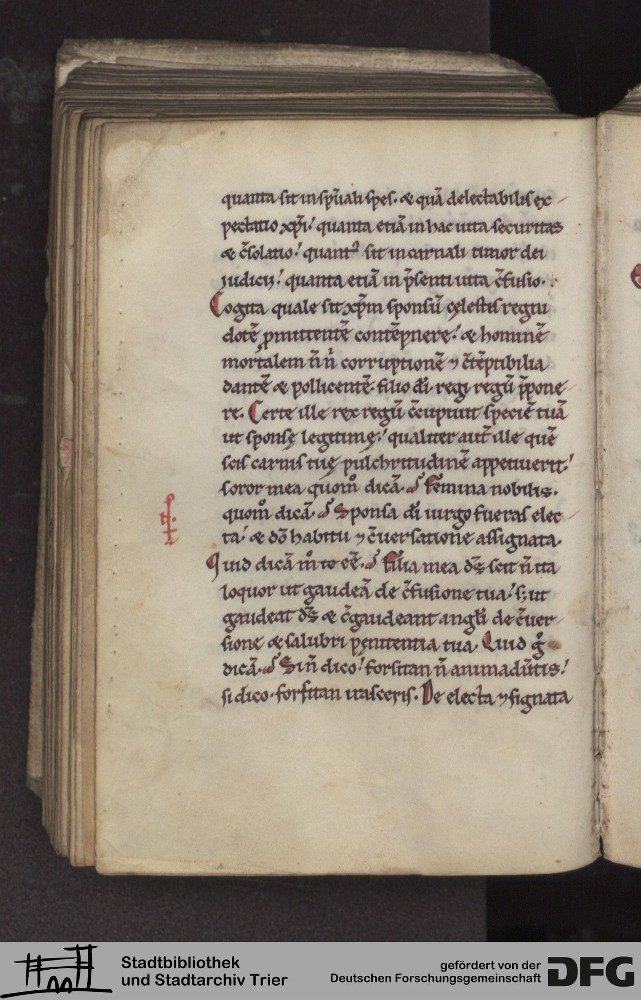 quanta sit in sp̄uali spes. & quā delectabilis ex-
pectatio xp̄i! quanta etiā in hac uita securitas
& c̄solatio! quantꝰ sit in carnali timor dei
iudicij! quanta etiā in p̄senti uita c̄fusio.
Cogita quale sit xp̄m sponsū cęlestis regni
dotē p̄mittentē contēpnere! & hominē
mortalem n̄ n̄ corruptionē ⁊ c̄tēptibilia
dantē & pollicentē. filio d̄i regi regū p̄pone
re. Certe ille rex regū c̄cupiuit speciē tuā
ut sponsę legitimę! qualiter aut̄ ille quē
scis carnis tuę pulchritudinē appetiuerit!
soror mea quom̊ dicā. Femina nobilis.
quom̊ dicā. Sponsa d̄i uirgo fueras elec-
ta! & d̄o habitu ⁊ c̄uersatione assignata.
Quid dicā m̊ te eē. Filia mea d̄s scit n̄ ita
loquor ut gaudeā de c̄fusione tua! s; ut
gaudeat d̄s & c̄gaudeant angl̄i de c̄uer-
sione & salubri penitentia tua. Quid g̊
dicā. Si n̄ dico! forsitan n̄ animad̄utis!
si dico. forsitan irasceris. De electa ⁊ signata
Stadtbibliothek
und Stadtarchiv Trier
gefördert von der
Deutschen Forschungsgemeinschaft
DFG